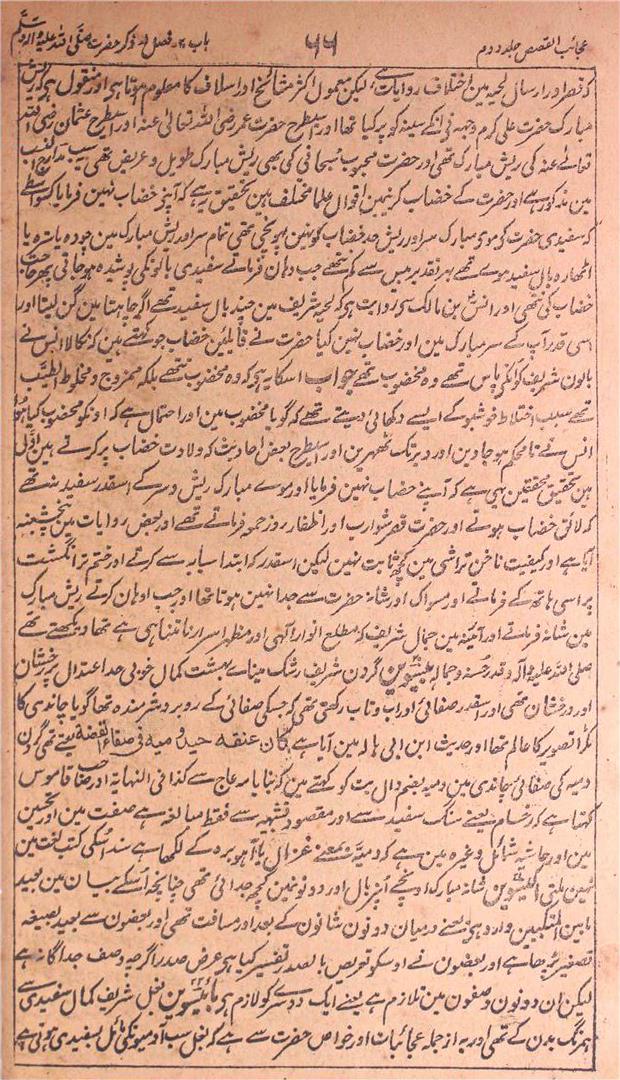 عجائب القصص جلد دوم ۶۶ باب ۲ فصل ذکر حضرت صلی اللہ علیہ وآلہ وسلم
کہ قصر اور ارسال لحیہ مین اختلاف روایات ہے لیکن معمول اکثر مشائخ اور اسلاف کا معلوم ہوتا ہی اور منقول ہی کہ ریش
مبارک حضرت علی کرم وجہہ کی انکے سینہ کو پر کیا تھا اور اسیطرح حضرت عمر رضی اللہ تعالی عنہ اور اسیطرح عثمان رضی اللہ
تعالے عنہ کی ریش مبارک تھی اور حضرت محبوب سبحانی کی بھی ریش مبارک طویل و عریض تھی
مین مذکور ہے اور حضرت کے خضاب کرنیمین اقوال علما مختلف ہین تحقیق یہ ہے کہ آپنے خضاب نہین فرمایا کسواسطے
کہ سفیدی حضرت کو موی مبارک سر اور ریش حد خضاب کو نہین پہونچی تھی تمام سر اور ریش مبارک مین چودہ یا سترہ یا
اٹھارہ بال سفید ہوے تھے بہر تقدیر بیس سے کم تھے جب دہان فرماتے سفیدی بالونکی پوشیدہ ہو جاتی پھر حاجت
خضاب کی نتھی اور انس بن مالک سی روایت ہی کہ لحیہ شریف مین چند بال سفید تھے اگر چاہتا مین گن لیتا اور
اسی قدر آپ کے سر مبارک مین اور خضاب نہین کیا حضرت نے قائلین خضاب جو کہتے ہین کہ نکالا انس نے
بالون شریف کو انکی پاس تھے وہ مخضوب تھے جواب اسکا یہ ہی کہ وہ مخضوب نتھے بلکہ ممزوج و مخلوط الطیب
تھے بسبب اختلاط خوشبو کے ایسے دکھائی دیتے تھے کہ گویا مخضوب مین اور احتمال ہے کہ اونکو مخضوب کیا ہو
انس نے تا محکم ہو جاوین اور دیر تک ٹھہرین اور اسیطرح بعض احادیث کہ ولادت خضاب پر کرتے ہین
ہین تحقیق محققین یہی ہے کہ آپنے خضاب نہین فرمایا اور موے مبارک ریش و سر کے اسقدر سفید نتھے
کہ لائق خضاب ہوتے اور حضرت قصر شوارب اور اظفار روز جمعہ فرماتے تھے اور بعض روایات مین پنجشنبہ
آیا ہے اور کیفیت ناخن تراشی مین کچھ ثابت نہین لیکن اسقدر کہ ابتدا سبابہ سے کرتے اور ختم بر انگشت
پر اسی ہاتھ کے فرماتے اور مسواک اور شانہ حضرت سے جدا نہین ہوتا تھا اور جب ادہان کرتے ریش مبارک
مین شانہ فرماتے اور آئینہ مین جمال شریف کہ مطلع انوار الٰہی اور مظہر اسرار نا تناہی ہے تھا دیکھتے تھے
صلی اللہ علیہ وآلہ وقدر حسنہ وجمالہ بیسوین گردن شریف رشک میناے بہشت کمال خوبی حد اعتدال پر رخشان
اور درخشان تھی اور اسقدر صفائی اور آب و تاب رکھتی تھی کہ جسکی صفائی کے روبرو شرمندہ تھا گویا چاندی کا
ٹکڑا تصویر کا عالم تھا اور حدیث ابن ابی ہالہ مین آیا ہے کان عنقہ جید دمیۃ فی صفاء الفضۃ یعنے تھی گردن
دمیہ کی صفائی چاندی مین دمیہ بضم دال بت کو کہتے مین کہ بنایا مہ عاج سے کذا فی النہایہ اور صاحب قاموس
کہتا ہے کہ رخام یعنے سنگ سفید سے اور مقصود تشبیہ سے فقط مبالغہ ہے صفت مین اور تحسین
مین اور حاشیہ شمائل وغیرہ مین ہے کہ دمیہ بمعنے غزال یا آہو برہ کے لکھا ہے سند اسکی کتب لغت مین
نہین ملتی اکیسوین شانہ مبارک اونچے اُنپر بال اور دونونمین کچھ جدائی تھی چنانچہ اُسکے بیان مین بعید
ما بین المنکبین وارد ہی یعنے درمیان دونون شانون کے بعد اور مسافت تھی اور بعضون سے بعید بصیغہ
تصغیر پڑھا ہے اور بعضون نے اوسکو تعریض یا بصدر تفسیر کیا ہی عرض صدر اگرچہ وصف جداگانہ ہے
لیکن ان دونون وصفون مین تلازم ہے یعنے ایک دوسرے کو لازم ہی بائیسوین بغل شریف کمال سفیدی سے
ہمرنگ بدن کے تھی اور یہ از جملہ عجائبات اور خواص حضرت سے ہے کہ بغل سب آدمیونکی مائل بسفیدی ہوتی ہے